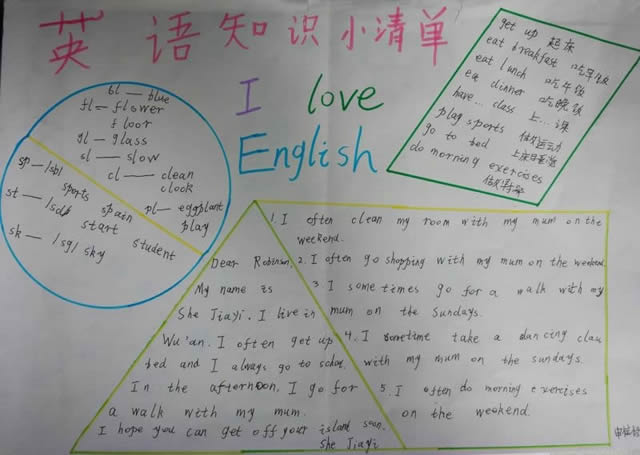 英语知识小清单
I love
English
get up 起床
eat breakfast 吃早饭
eat lunch 吃午饭
eat dinner 吃晚饭
have... class 上...课
play sports 做运动
go to bed 上床睡觉
do morning exercises
做早操
bl — blue
fl — flower
floor
gl — glass
sl — slow
cl — clean
clock
pl — eggplant
play
sp — /sb/
sports
spain
st — /sd/
start
student
sk — /sg/ sky
Dear Robinson,
My name is
She Jiayi. I live in
Wu'an. I often get up
bed and I always go to school.
In the afternoon, I go for
a walk with my mum.
I hope you can get off your island soon.
She Jiayi
1. I often clean my room with my mum on the
weekend.
2. I often go shopping with my mum on the weekend.
3 I some times go for a walk with my
mum on the sundays.
4. I sometime take a dancing clau
with my mum on the sundays.
5. I often do morning exercises
on the weekend.